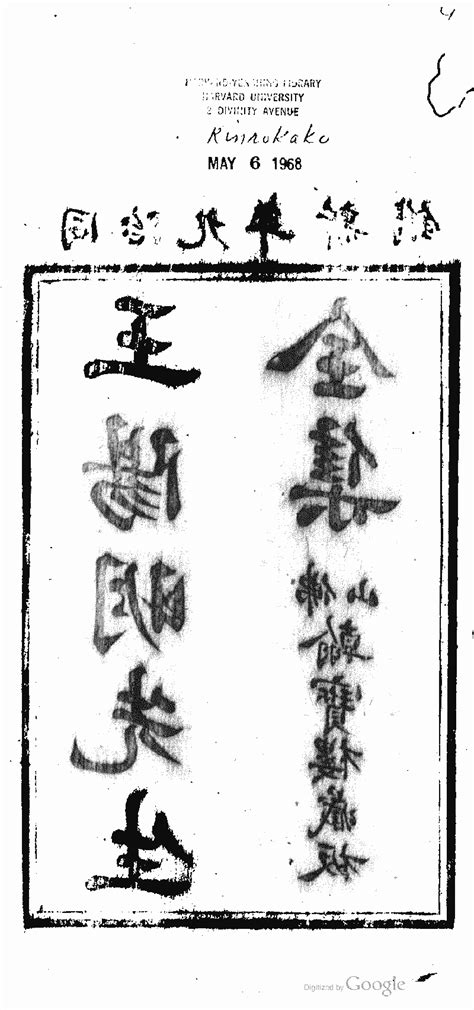 4
HARVARD-YENCHING LIBRARY
HARVARD UNIVERSITY
2 DIVINITY AVENUE
Kinrokaku
MAY 6 1968
同治九年新鐫
王陽明先生
全集
佛山翰寶樓藏板
Digitized by Google